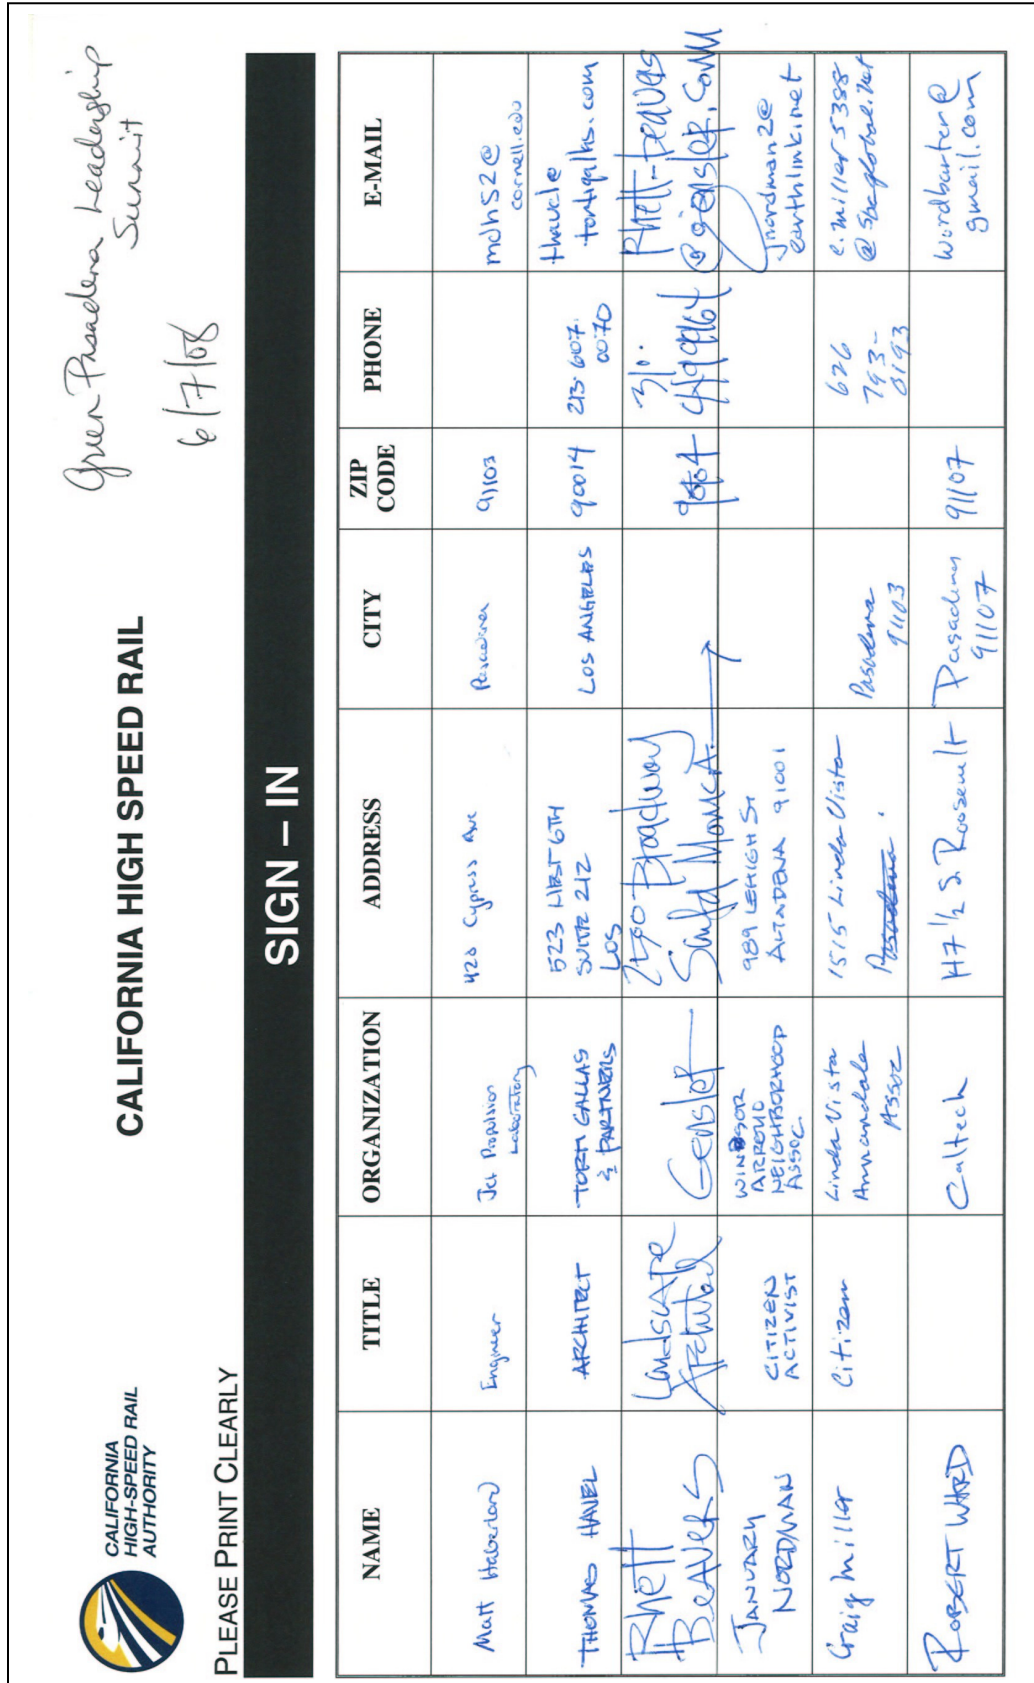 Green Pasadena Leadership
Summit
6/7/08
CALIFORNIA
HIGH-SPEED RAIL
AUTHORITY
CALIFORNIA HIGH SPEED RAIL
PLEASE PRINT CLEARLY
SIGN – IN
NAME TITLE ORGANIZATION ADDRESS CITY ZIP CODE PHONE E-MAIL
Matt Haberland
Engineer
Jet Propulsion
Laboratory
420 Cypress Ave
Pasadena
91103
mdh52@
cornell.edu
THOMAS HAVEL
ARCHITECT
TORTI GALLAS
& PARTNERS
523 WEST 6TH
SUITE 212
LOS
LOS ANGELES
90014
213.607.
0070
thavel@
tortigallas.com
Rhett
BEAVERS
Landscape
Architect
Gensler
Broadway
Santa Monica
310.
Rhett-beavers
@gensler.com
JANUARY
NORDMAN
CITIZEN
ACTIVIST
WINDSOR
ARROYO
NEIGHBORHOOD
ASSOC.
989 LEHIGH ST
ALTADENA 91001
jnordman2@
earthlink.net
Craig Miller
Citizen
Linda Vista
Annandale
Assoc
1515 Linda Vista
Pasadena
Pasadena
91103
626
793-
0193
c.miller5388
@sbcglobal.net
ROBERT WARD
Caltech
47 1/2 S. Roosevelt
Pasadena
91107
91107
wordbarter@
gmail.com